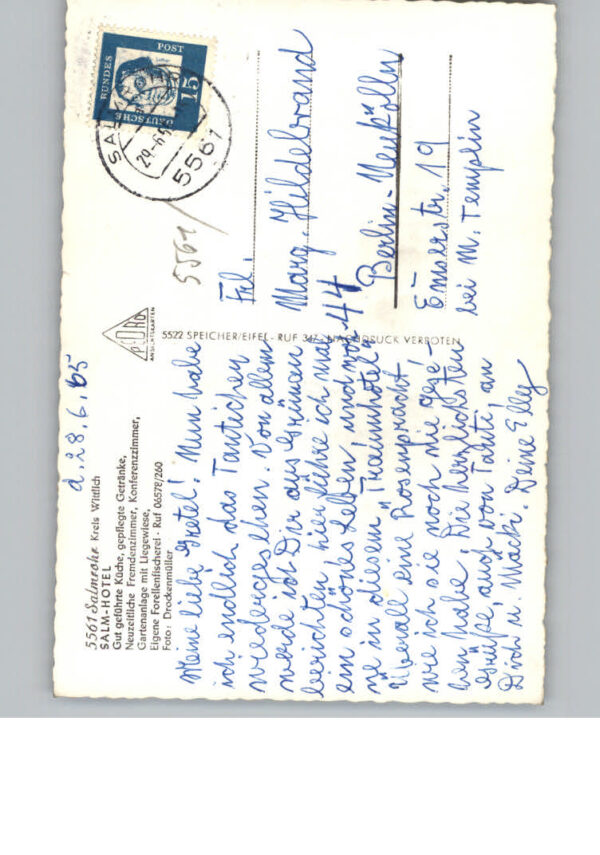 5561 Salmrohr Kreis Wittlich
SALM-HOTEL
Gut geführte Küche, gepflegte Getränke,
Neuzeitliche Fremdenzimmer, Konferenzzimmer,
Gartenanlage mit Liegewiese,
Eigene Forellenfischerei - Ruf 06578/260
Foto: Drockenmüller
d. 28.6.65
Meine liebe Gretel! Nun habe
ich endlich das Tantichen
wiedergesehen. Von allem
werde ich Dir aus Grünen
berichten, hier führe ich mal
ein schönes Leben, und
in diesem "Traumhotel"
Überall eine Rosenpracht
wie ich sie noch nie gese-
hen habe. Die herzlichsten
Grüße, auch von Tanti, an
Dich u. Macki. Deine Elly
ANSICHTSKARTEN
5522 SPEICHER/EIFEL - RUF 347 - NACHDRUCK VERBOTEN
DEUTSCHE
BUNDES
POST
15
SALMROHR
29.-6.65
5561
5561
Frl.
Marg. Hildebrand
44
Berlin-Neukölln
Emserstr. 19
bei M. Templin